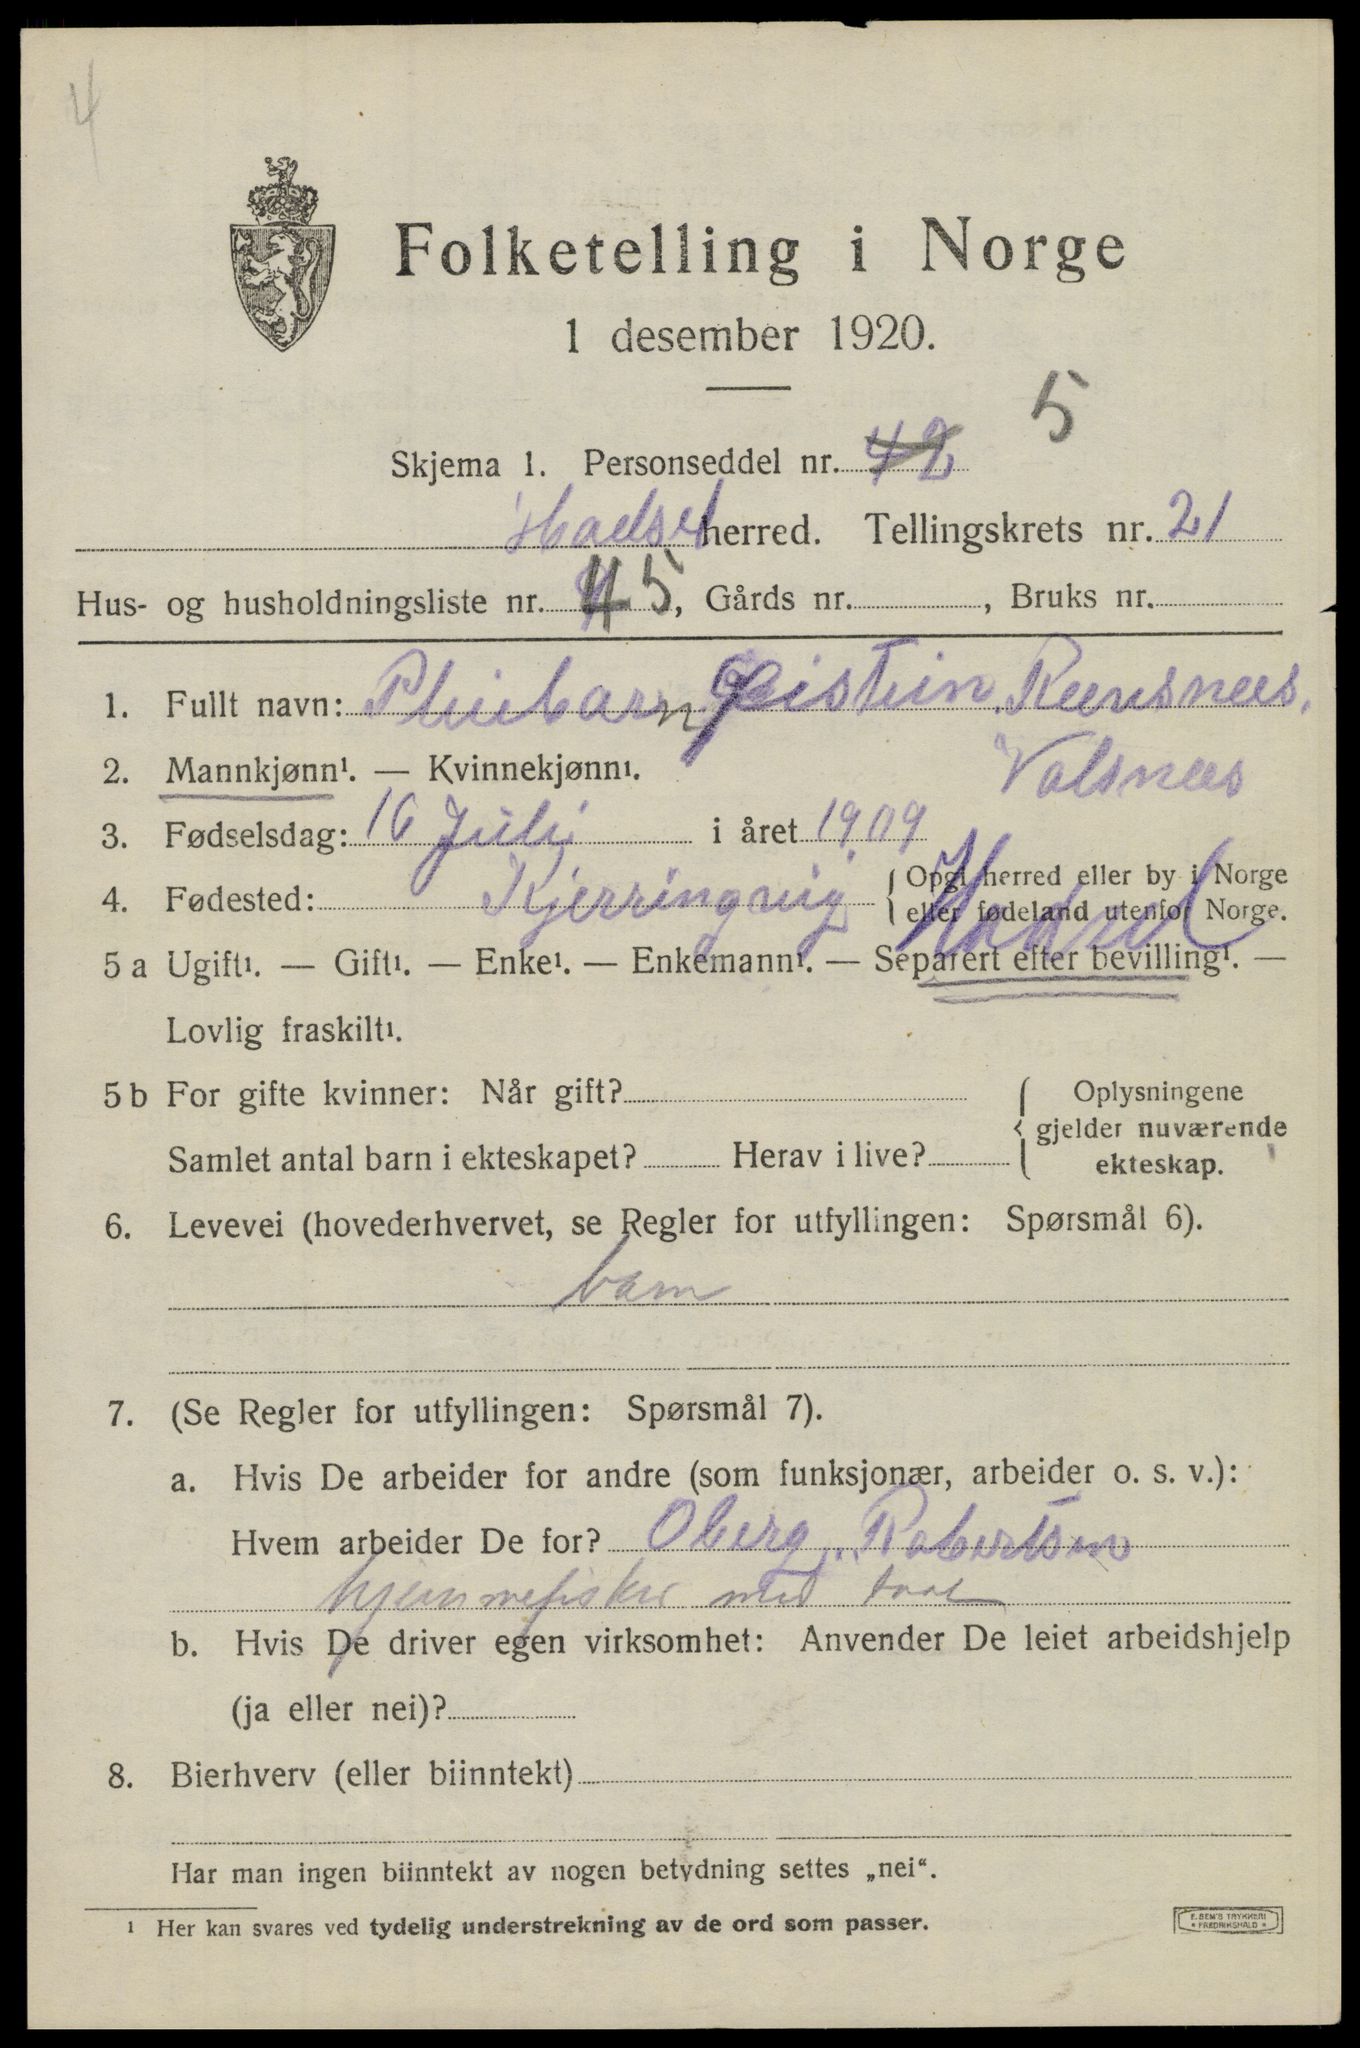 4
Folketelling i Norge
1 desember 1920.
5
Skjema 1. Personseddel nr. 42
Hadsel herred. Tellingskrets nr. 21
Hus- og husholdningsliste nr. 45, Gårds nr. , Bruks nr.
1. Fullt navn: Pleiebarn Øistein Reensnees.
Valsnees
2. Mannkjønn¹. — Kvinnekjønn¹.
3. Fødselsdag: 16 Juli i året 1909
4. Fødested: Kjerringvig Opgi herred eller by i Norge
eller fødeland utenfor Norge.
Hadsel
5 a Ugift¹. — Gift¹. — Enke¹. — Enkemann¹. — Separert efter bevilling¹. —
Lovlig fraskilt¹.
5 b For gifte kvinner: Når gift? Oplysningene
gjelder nuværende
Samlet antal barn i ekteskapet? Herav i live? ekteskap.
6. Levevei (hovederhvervet, se Regler for utfyllingen: Spørsmål 6).
barn
7. (Se Regler for utfyllingen: Spørsmål 7).
a. Hvis De arbeider for andre (som funksjonær, arbeider o. s. v.):
Hvem arbeider De for? Oberg Robertsen
hjemmefisker med
b. Hvis De driver egen virksomhet: Anvender De leiet arbeidshjelp
(ja eller nei)?
8. Bierhverv (eller biinntekt)
Har man ingen biinntekt av nogen betydning settes „nei“.
¹ Her kan svares ved tydelig understrekning av de ord som passer.
E. SEM'S TRYKKERI
* FREDRIKSHALD *